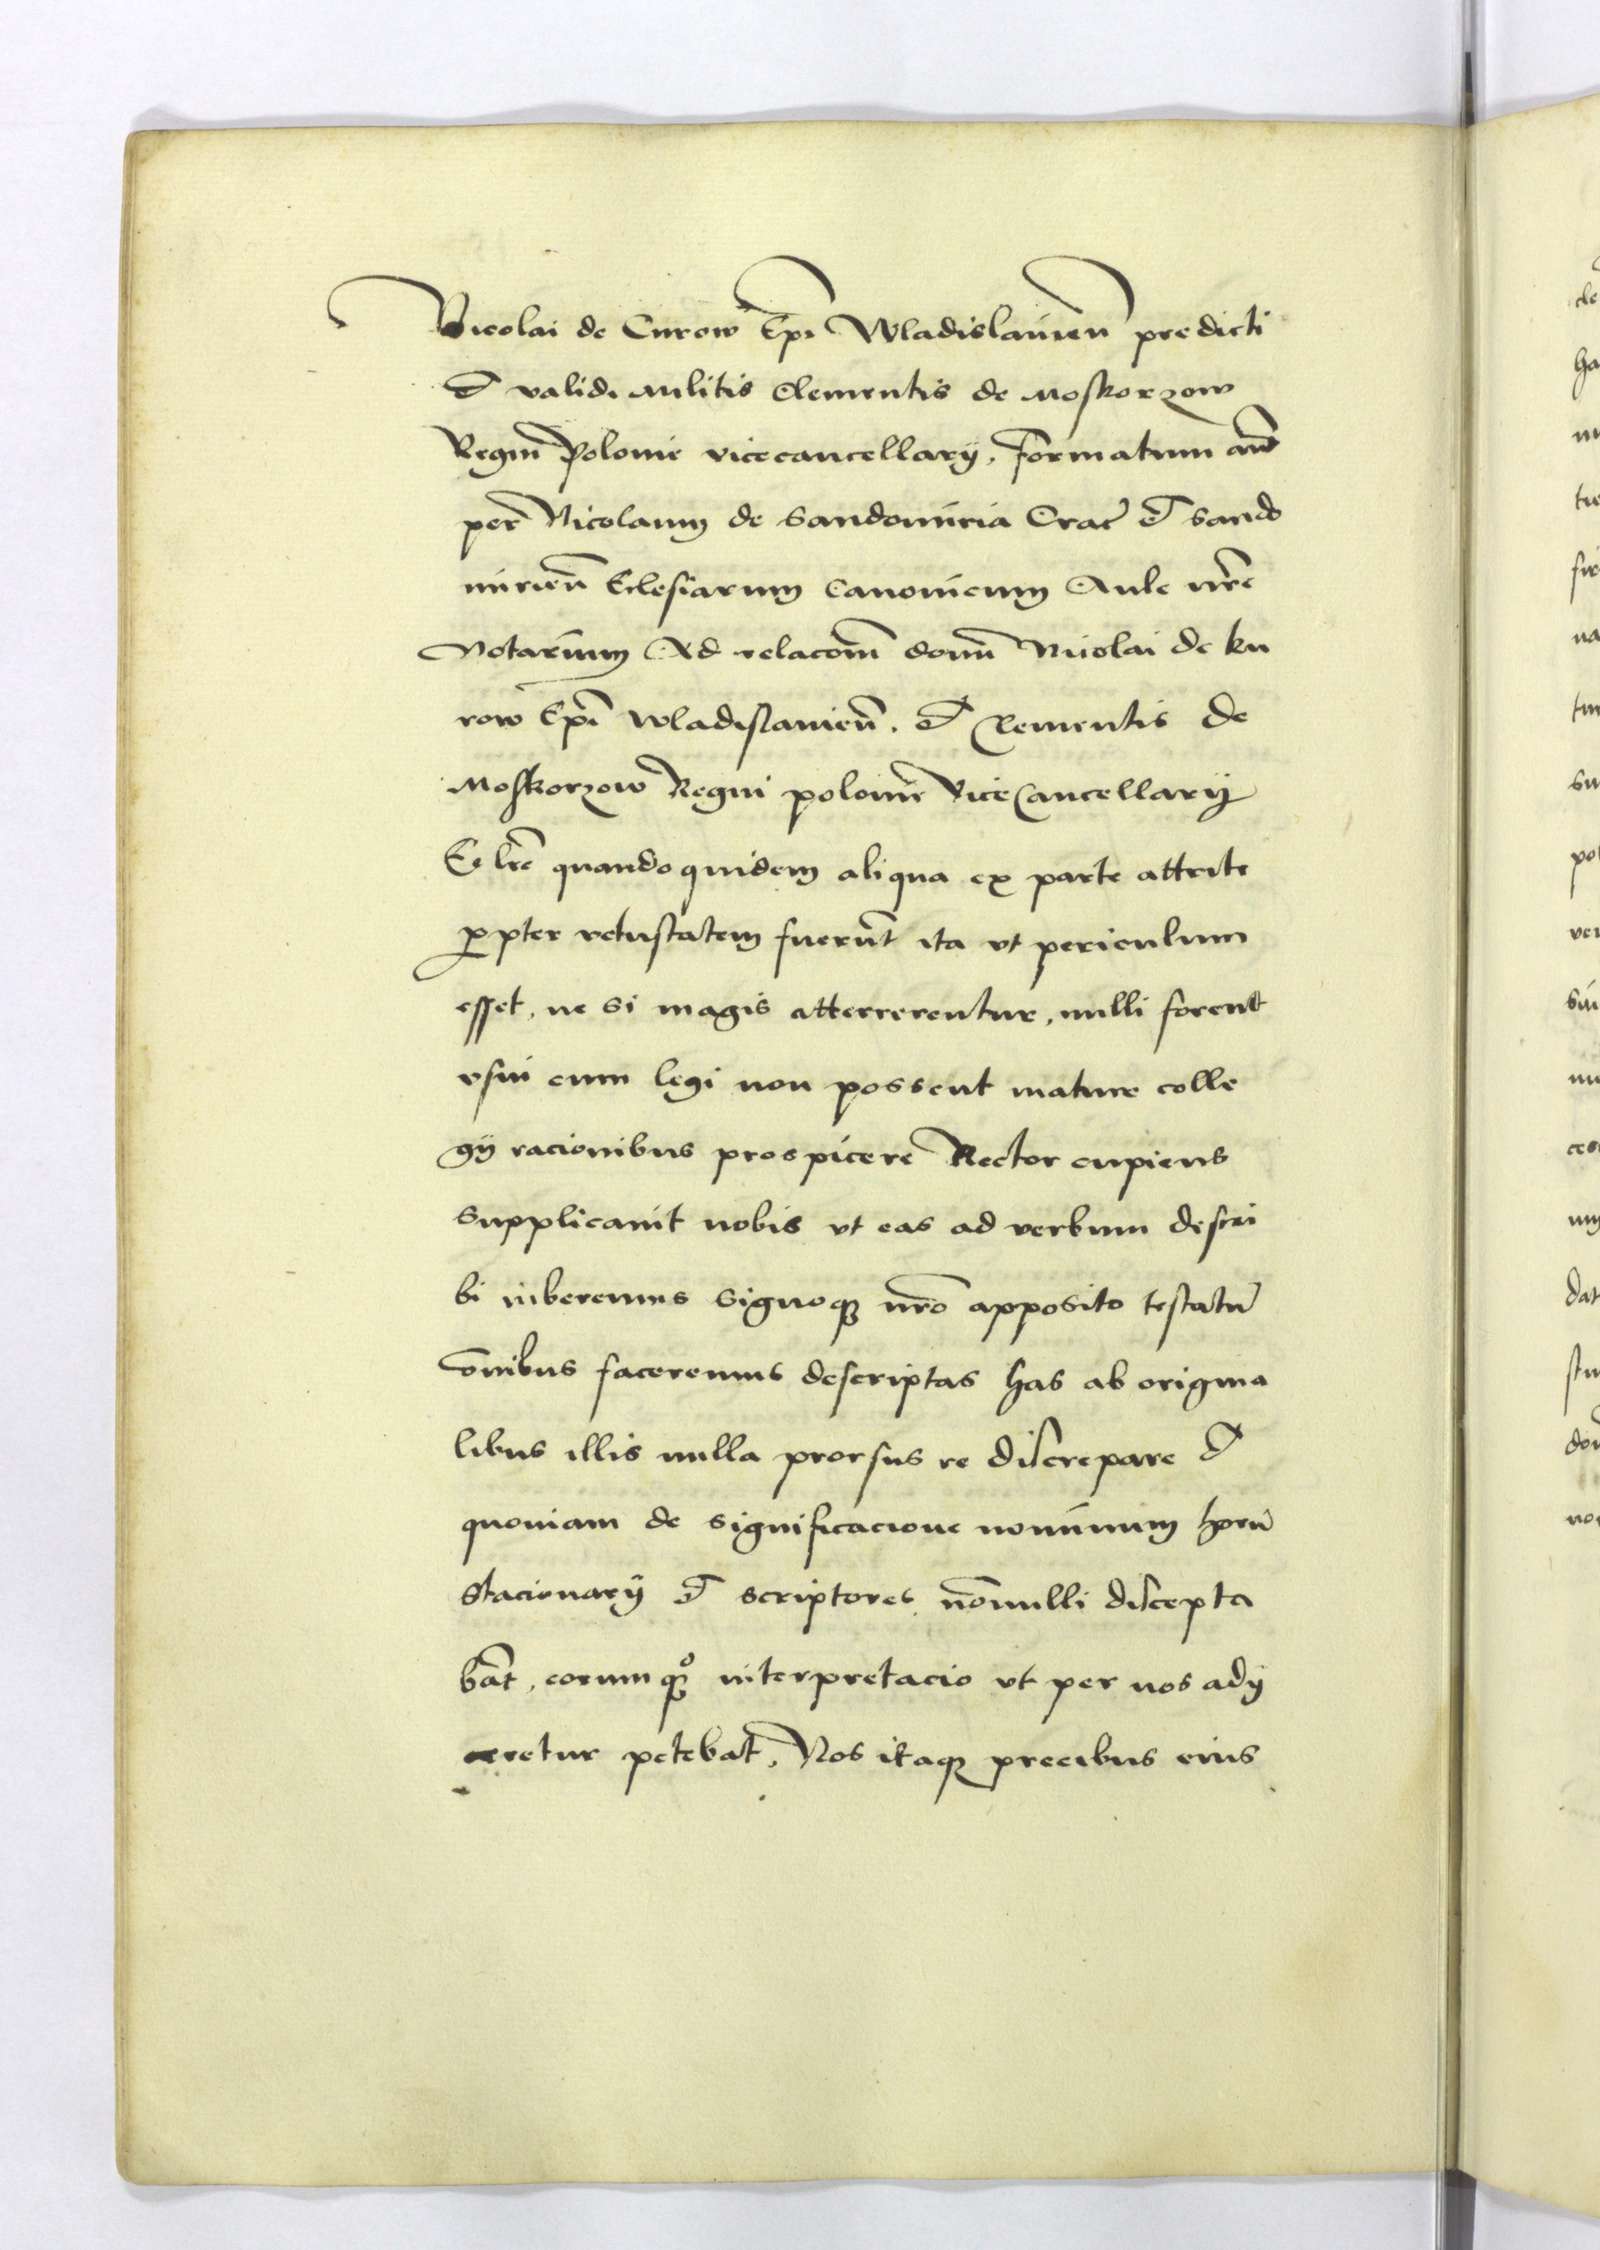 Nicolai de Curow Ep̄i Wladislauien̄ predicti
et validi militis Clementis de Moskorzow
Regni Polonie vicecancellarij, formatum aūt
per Nicolaum de Sandomiria Crac̄ et Sando
mirien̄ Ecclesiarum Canonicum Aule nr̄e
Notarium Ad relacoēm domī Nicolai de Ku
row Ep̄i Wladislauien̄. et Clementis de
Moskorzow Regni polonie ViceCancellarij
Ee lr̄e quando quidem aliqua ex parte attrite
ꝓpter vetustatem fuerūt ita vt periculum
esset, ne si magis attererentur, nulli forent
vsui cum legi non possent mature colle
gij racionibus prospicere Rector cupiens
supplicauit nobis vt eas ad verbum descri
bi iuberemus signoqꝫ nr̄o apposito testatū
om̄ibus faceremus descriptas has ab origina
libus illis nulla prorsus re discrepare et
quoniam de significacione nominum horū
stacionarij et scriptores nōnulli discepta
bāt, eorumqꝫ interpretacio vt per nos adij
ceretur petebat, Nos itaqꝫ precibus eius